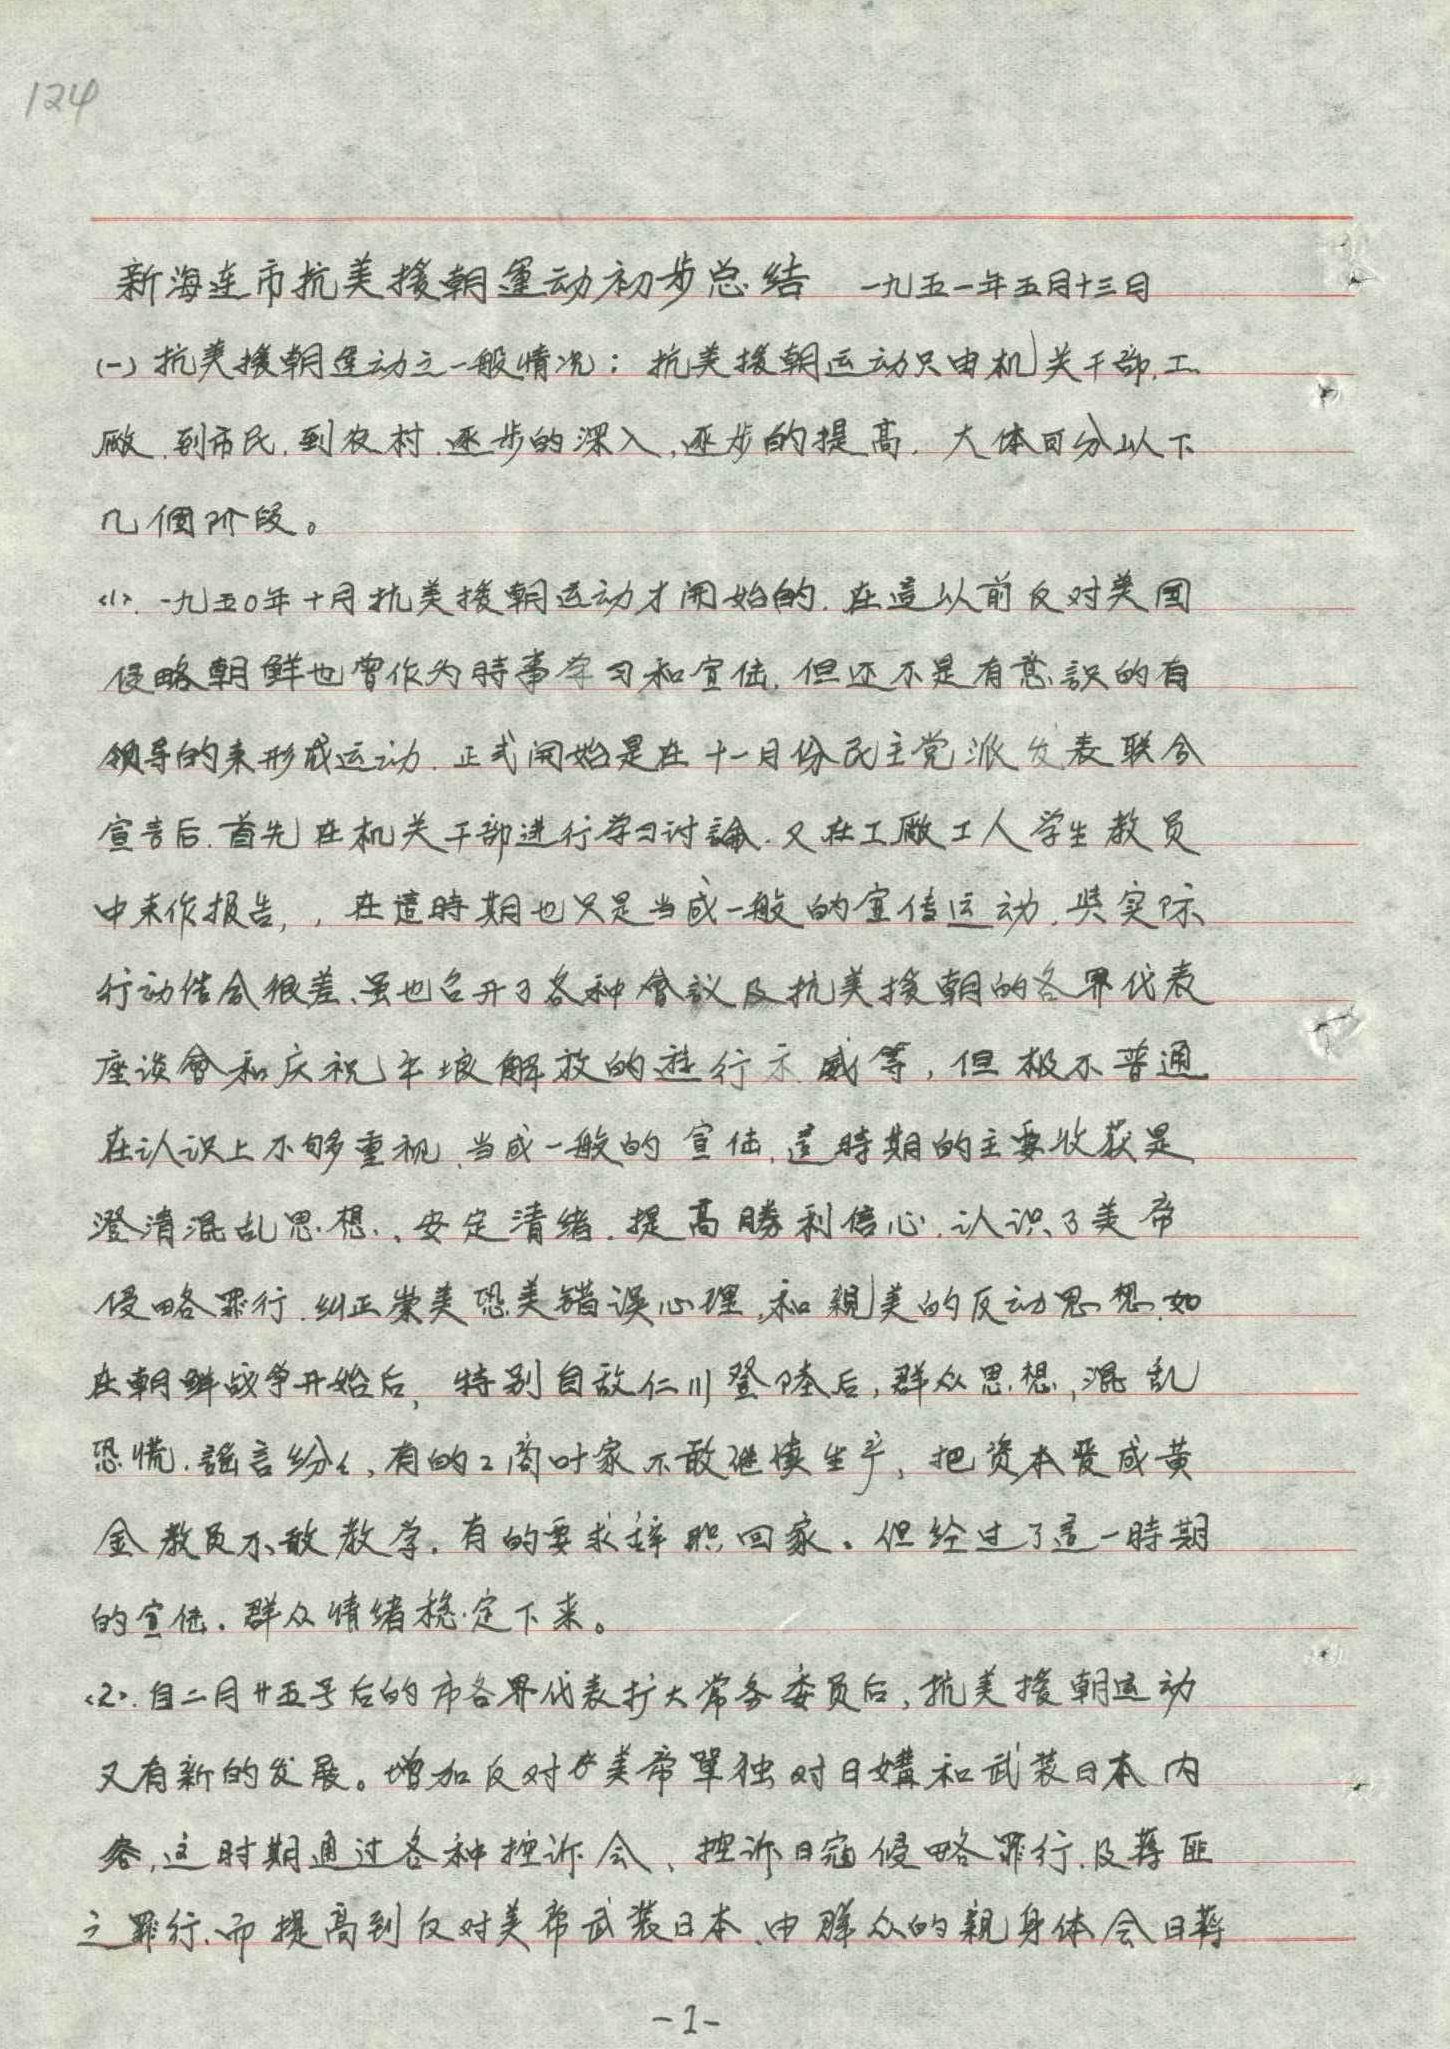 124
新海连市抗美援朝運动初步总结 一九五一年五月十三日
(一)抗美援朝運动之一般情况：抗美援朝运动只由机关干部.工
厰.到市民.到农村.逐步的深入,逐步的提高.大体可分以下
几個阶段。
<1>.一九五〇年十月抗美援朝运动才開始的.在這以前反对美國
侵略朝鲜也曾作为時事学习和宣传.但还不是有意識的有
领导的来形成运动.正式開始是在十一月份民主党派发表联合
宣言后.首先在机关干部进行学习讨論.又在工厰工人学生教员
中来作报告,,在這時期也只是当成一般的宣传运动.與实际
行动结合很差.虽也召开了各种會议及抗美援朝的各界代表
座谈會和庆祝平壤解放的遊行示威等,但极不普通
在认识上不够重视.当成一般的宣传.這時期的主要收获是
澄清混乱思想.、安定清绪.提高勝利信心.认识了美帝
侵略罪行.纠正崇美恐美错误心理.和親美的反动思想.如
在朝鲜战争开始后,特别自敌仁川登陸后,群众思想,混乱
恐慌.謠言纷々,有的工商叶家不敢继续生产,把资本变成黄
金教员不敢教学.有的要求辞职回家.但经过了這一時期
的宣传.群众情绪稳定下来。
<2>.自二月廿五号后的市各界代表扩大常务委员后,抗美援朝运动
又有新的发展。增加反对美帝單独对日媾和武装日本内
容,这时期通过各种控诉会、控诉日寇侵略罪行.及蒋匪
之罪行.而提高到反对美帝武装日本.由群众的親身体会日蒋
-1-